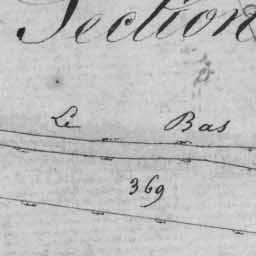 Section
Le Bas
369